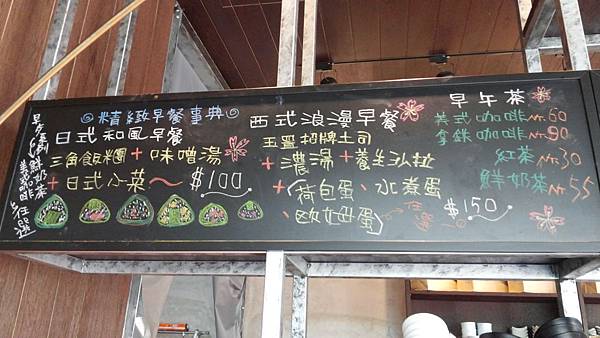 精緻早餐事典
日式和風早餐
三角飯糰+味噌湯
+日式小菜~ $100
西式浪漫早餐
玉盤招牌土司
+濃湯+養生沙拉
+(荷包蛋、水煮蛋
、歐姆蛋)任選
$150
早午茶
美式咖啡 NT.60
拿鉄咖啡 NT.90
紅茶 NT.30
鮮奶茶 NT.55
鮮奶茶
美式咖啡
任選